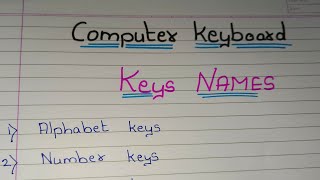 Computer Keyboard
Keys NAMES
1) Alphabet keys
2) Number keys